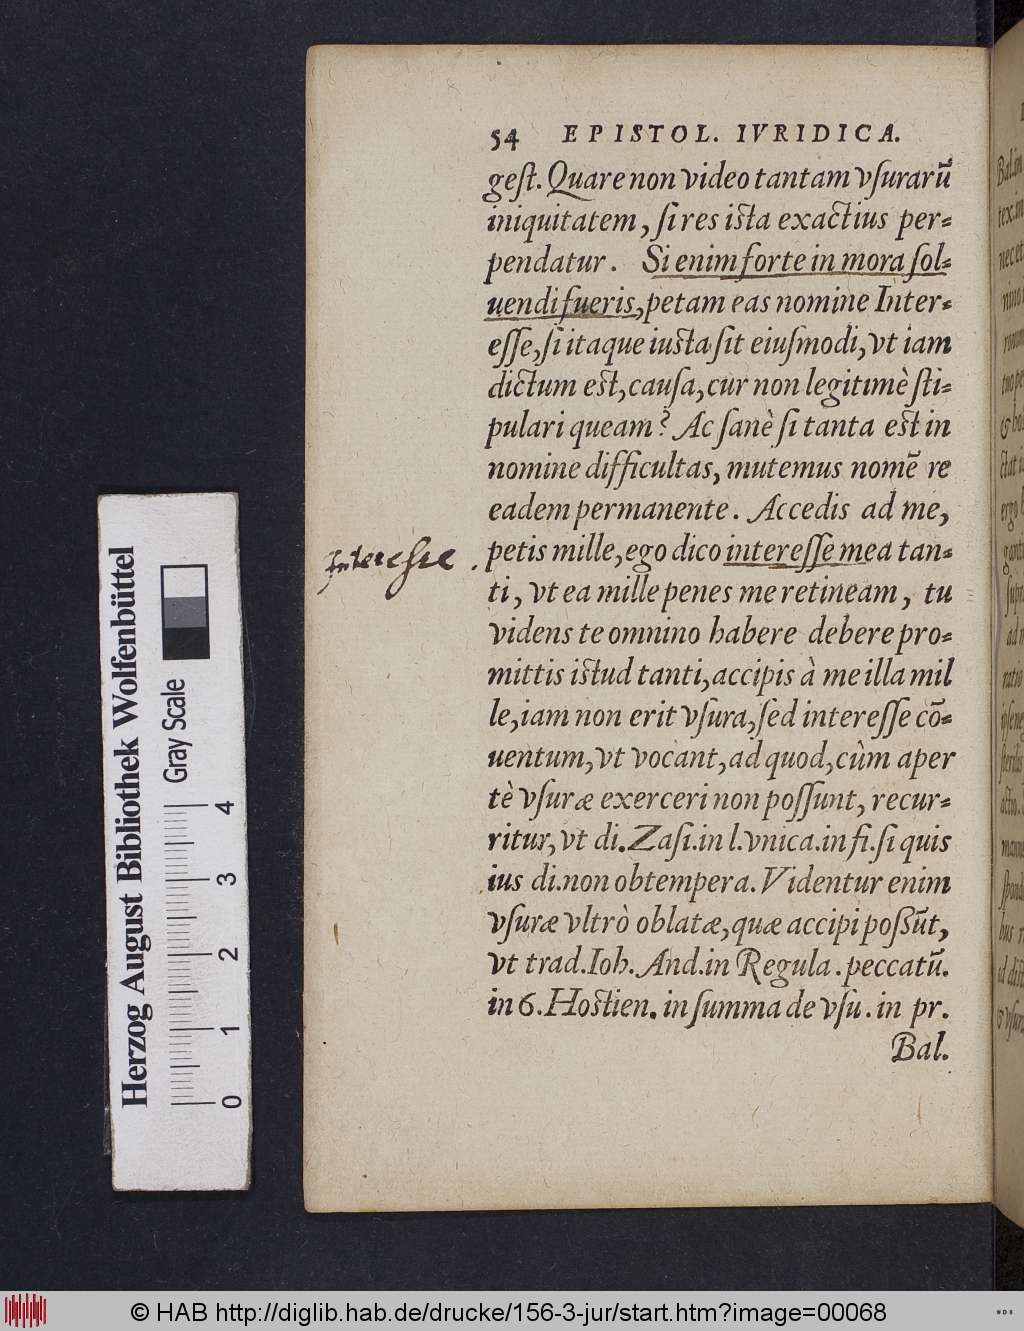 54 EPISTOL. IVRIDICA.
geſt. Quare non video tantam vſurarū
iniquitatem, ſi res iſta exactius per-
pendatur. Si enim forte in mora ſol-
uendi fueris, petam eas nomine Inter-
eſſe, ſi itaque iusta ſit eiuſmodi, vt iam
dictum eſt, cauſa, cur non legitimè ſti-
pulari queam? Ac ſanè ſi tanta eſt in
nomine difficultas, mutemus nomē re
eadem permanente. Accedis ad me,
Interesse. petis mille, ego dico intereſſe mea tan-
ti, vt ea mille penes me retineam, tu
videns te omnino habere debere pro-
mittis iſtud tanti, accipis à me illa mil
le, iam non erit vſura, ſed intereſſe cō-
uentum, vt vocant, ad quod, cùm aper
tè vſuræ exerceri non poſſunt, recur-
ritur, vt di. Zaſi. in l. vnica. in fi. ſi quis
ius di. non obtempera. Videntur enim
vſuræ vltrò oblatæ, quæ accipi poßūt,
vt trad. Ioh. And. in Regula. peccatū.
in 6. Hoſtien. in ſumma de vſu. in pr.
Bal.
Herzog August Bibliothek Wolfenbüttel
Gray Scale
0 1 2 3 4
© HAB http://diglib.hab.de/drucke/156-3-jur/start.htm?image=00068